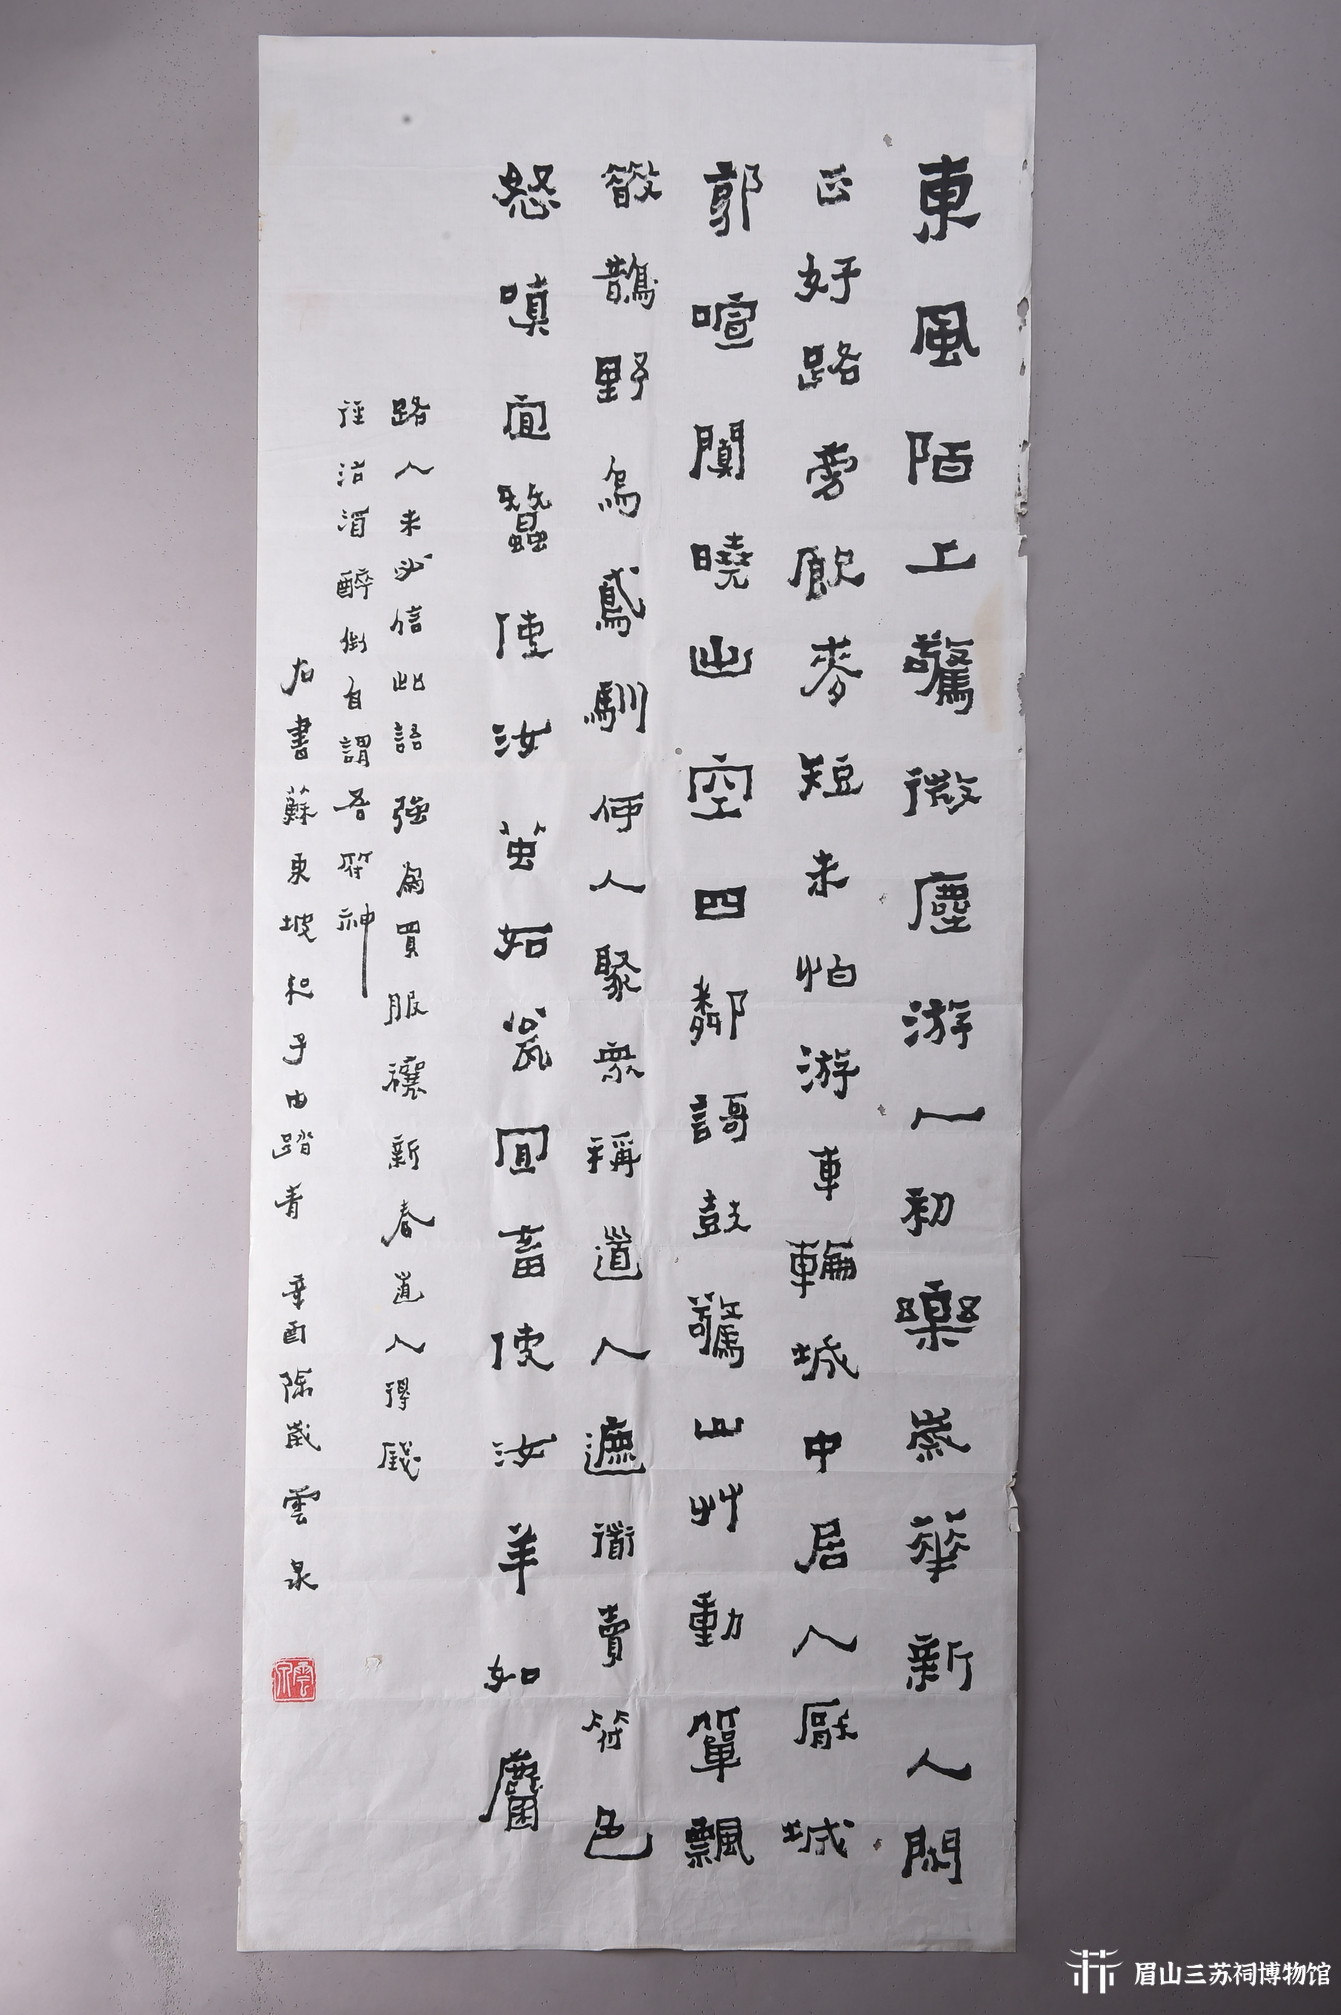 東風陌上驚微塵游人初樂歲華新人閑
正好路旁飲麥短未怕游車輪城中居人厭城
郭喧闐曉出空四鄰謌鼓驚山艸動簞瓢
散鵲野烏鳶馴何人聚衆稱道人遮衜賣符色
怒嗔宜蠶使汝茧如瓮宜畜使汝羊如麕
路人未必信此語強為買服禳新春道人得錢
徑沽酒醉倒自謂吾符神
右書蘇東坡和子由踏青 辛酉除歲雲泉
雲泉
眉山三苏祠博物馆